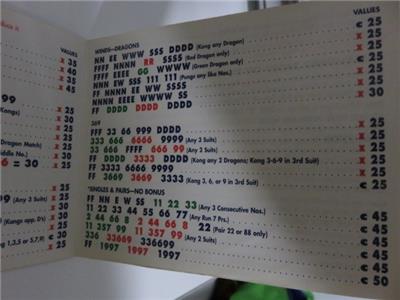 VALUES
x 35
x 40
x 35
x 30
99
Kongs)
x 25
x 25
x 25
Dragon Match)
6 = 30
x 25
x 25
(Any 3 Suits)
x 25
x 25
Kongs opp. D's)
x 25
x 25
ng 1,3,5 or 5,7,9)
x 25
VALUES
WINDS—DRAGONS
NN EE WWW SSS DDDD (Kong any Dragon) C 25
FFFF NNNN RR SSSS (Red Dragon only) X 25
FFFF EEEE GG WWWW (Green Dragon only) X 25
NNN EW SSS 111 111 (Pungs any like Nos.) X 25
FF NN EEE WWW SSSS X 25
NNNN EEEE WWWW SS X 25
FF DDDD DDDD DDDD X 30
369
FFF 33 66 999 DDDD X 25
333 666 6666 9999 (Any 2 Suits) X 25
33 666 FFFF 666 99 (Any 2 Suits) X 25
FF DDDD 3333 DDDD (Kong any 2 Dragons; Kong 3-6-9 in 3rd Suit) X 25
FF 3669 3669 3333 (Kong 3, 6, or 9 in 3rd Suit) X 25
SINGLES & PAIRS—NO BONUS
FF NN E W SS 11 22 33 (Any 3 Consecutive Nos.) C 50
11 22 33 44 55 66 77 (Any Run 7 Prs.) C 45
2 44 66 8 2 44 66 8 22 (Pair 22 or 88 only) C 45
11 357 99 11 357 99 (Any 2 Suits) C 45
336 33669 336699 (Any 3 Suits) C 45
FF 1997 1997 1997 C 50